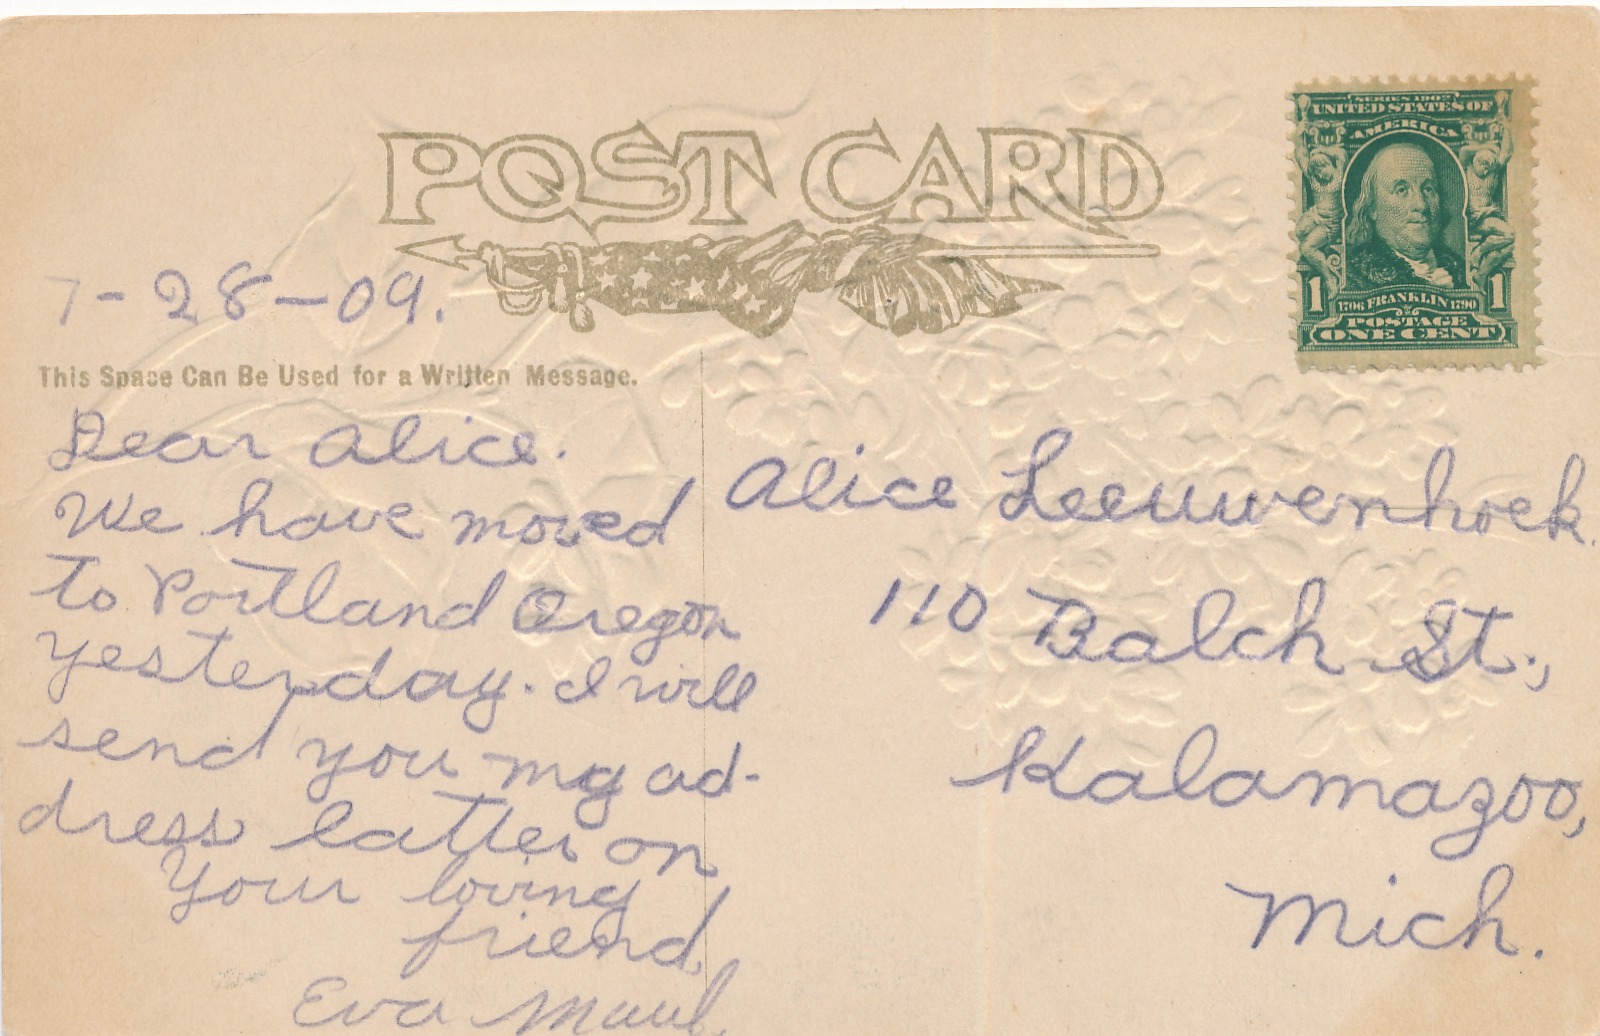 POST CARD
SERIES 1902
UNITED STATES OF
AMERICA
1 1706 FRANKLIN 1790 1
POSTAGE
ONE CENT
7-28-09.
This Space Can Be Used for a Written Message.
Dear Alice.
We have moved
to Portland Oregon
yesterday. I will
send you my ad-
dress latter on
Your loving
friend,
Eva Maul.
Alice Leeuwenhoek.
110 Balch St.,
Kalamazoo,
Mich.